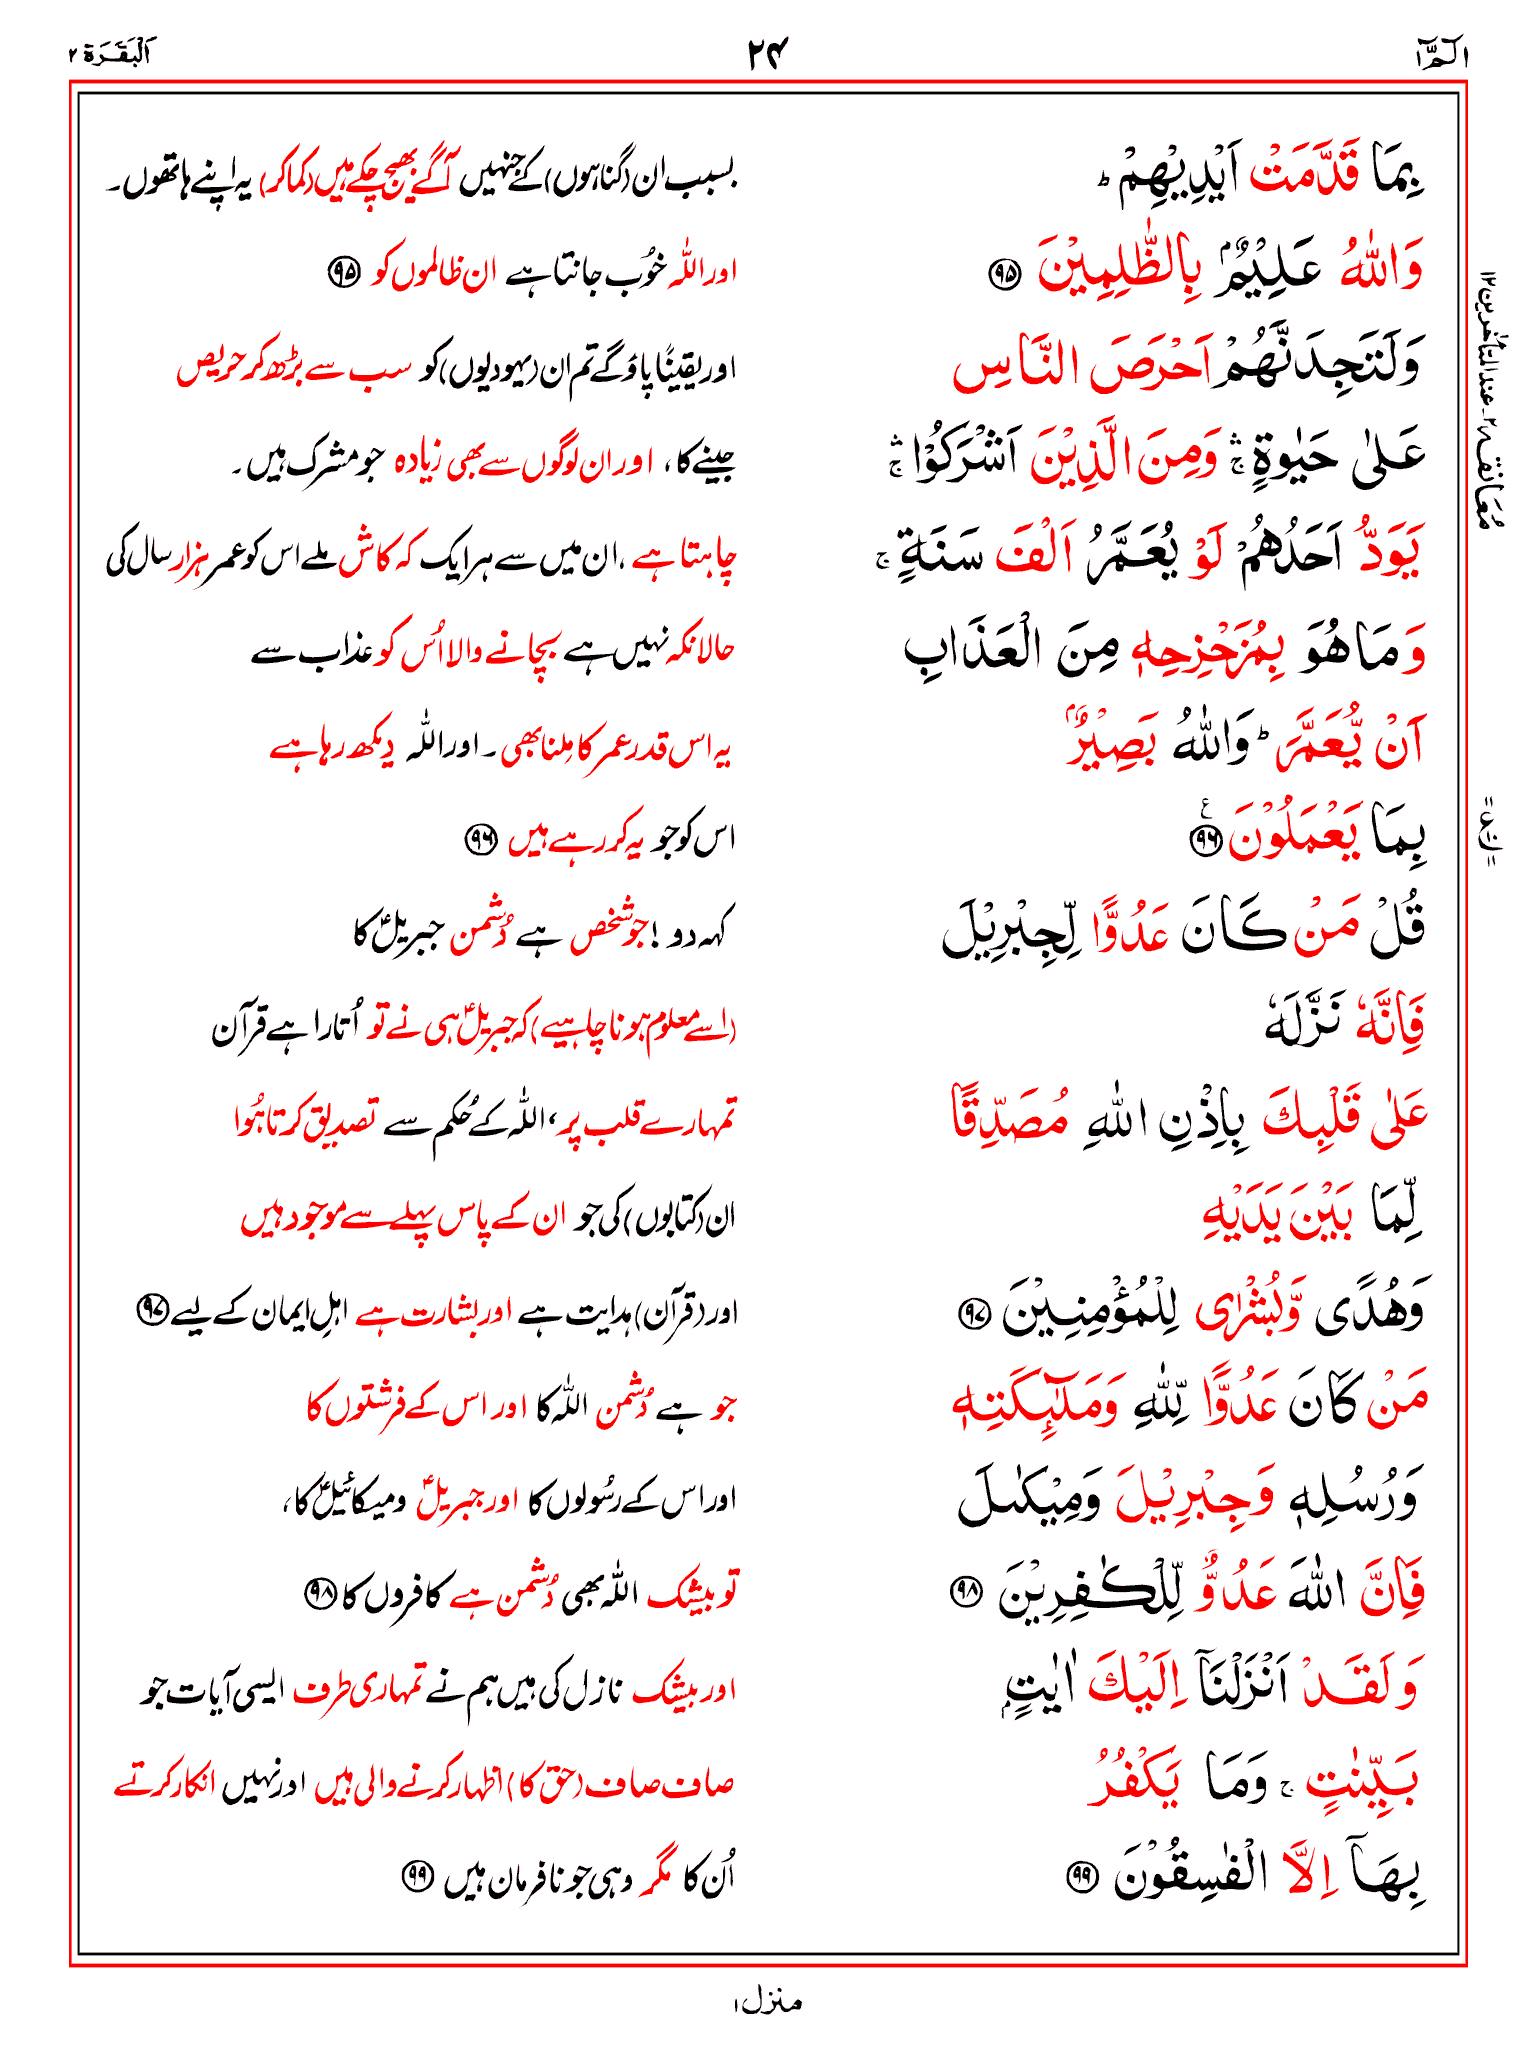 الٓمّٓ ۱
۲۴
اَلْبَقَرَة ۲
بِمَا قَدَّمَتْ اَيْدِيْهِمْ ؕ
بسبب ان (گناہوں) کے جنہیں آگے بھیج چکے ہیں (کماکر) یہ اپنے ہاتھوں۔
وَاللّٰهُ عَلِيْمٌۢ بِالظّٰلِمِيْنَ ﴿۹۵﴾
اور اللہ خوُب جانتا ہے ان ظالموں کو ﴿۹۵﴾
وَلَتَجِدَنَّهُمْ اَحْرَصَ النَّاسِ
اور یقیناً پاؤ گے تم ان (یہودیوں) کو سب سے بڑھ کر حریص
عَلٰى حَيٰوةٍ ۛۚ وَمِنَ الَّذِيْنَ اَشْرَكُوْا ۛۚ
جینے کا، اور ان لوگوں سے بھی زیادہ جو مشرک ہیں۔
يَوَدُّ اَحَدُهُمْ لَوْ يُعَمَّرُ اَلْفَ سَنَةٍ ۚ
چاہتا ہے، ان میں سے ہر ایک کہ کاش ملے اس کو عمر ہزار سال کی
وَمَا هُوَ بِمُزَحْزِحِهٖ مِنَ الْعَذَابِ
حالانکہ نہیں ہے بچانے والا اُس کو عذاب سے
اَنْ يُّعَمَّرَ ؕ وَاللّٰهُ بَصِيْرٌۢ
یہ اس قدر عمر کا مِلنا بھی۔ اور اللہ دیکھ رہا ہے
بِمَا يَعْمَلُوْنَ ﴿۹۶﴾ ع
اس کو جو یہ کر رہے ہیں ﴿۹۶﴾
قُلْ مَنْ كَانَ عَدُوًّا لِّجِبْرِيْلَ
کہہ دو! جو شخص ہے دُشمن جبریلؑ کا
فَاِنَّهٗ نَزَّلَهٗ
(اسے معلوم ہونا چاہیے) کہ جبریلؑ ہی نے تو اُتارا ہے قرآن
عَلٰى قَلْبِكَ بِاِذْنِ اللّٰهِ مُصَدِّقًا
تمہارے قلب پر، اللہ کے حُکم سے تصدیق کرتا ہُوا
لِّمَا بَيْنَ يَدَيْهِ
ان (کتابوں) کی جو ان کے پاس پہلے سے موجود ہیں
وَهُدًى وَّبُشْرٰى لِلْمُؤْمِنِيْنَ ﴿۹۷﴾
اور (قرآن) ہدایت ہے اور بشارت ہے اہلِ ایمان کے لیے ﴿۹۷﴾
مَنْ كَانَ عَدُوًّا لِّلّٰهِ وَمَلٰٓئِكَتِهٖ
جو ہے دُشمن اللہ کا اور اس کے فرشتوں کا
وَرُسُلِهٖ وَجِبْرِيْلَ وَمِيْكٰىلَ
اور اس کے رسُولوں کا اور جبریلؑ و میکائیلؑ کا،
فَاِنَّ اللّٰهَ عَدُوٌّ لِّلْكٰفِرِيْنَ ﴿۹۸﴾
تو بیشک اللہ بھی دُشمن ہے کافروں کا ﴿۹۸﴾
وَلَقَدْ اَنْزَلْنَآ اِلَيْكَ اٰيٰتٍۢ
اور بیشک نازل کی ہیں ہم نے تمہاری طرف ایسی آیات جو
بَيِّنٰتٍ ۚ وَمَا يَكْفُرُ
صاف صاف (حق کا) اظہار کرنے والی ہیں اور نہیں انکار کرتے
بِهَآ اِلَّا الْفٰسِقُوْنَ ﴿۹۹﴾
اُن کا مگر وہی جو نافرمان ہیں ﴿۹۹﴾
مُعَانقہ ۲۔ عند المتأخرین ۱۲
منزل ۱